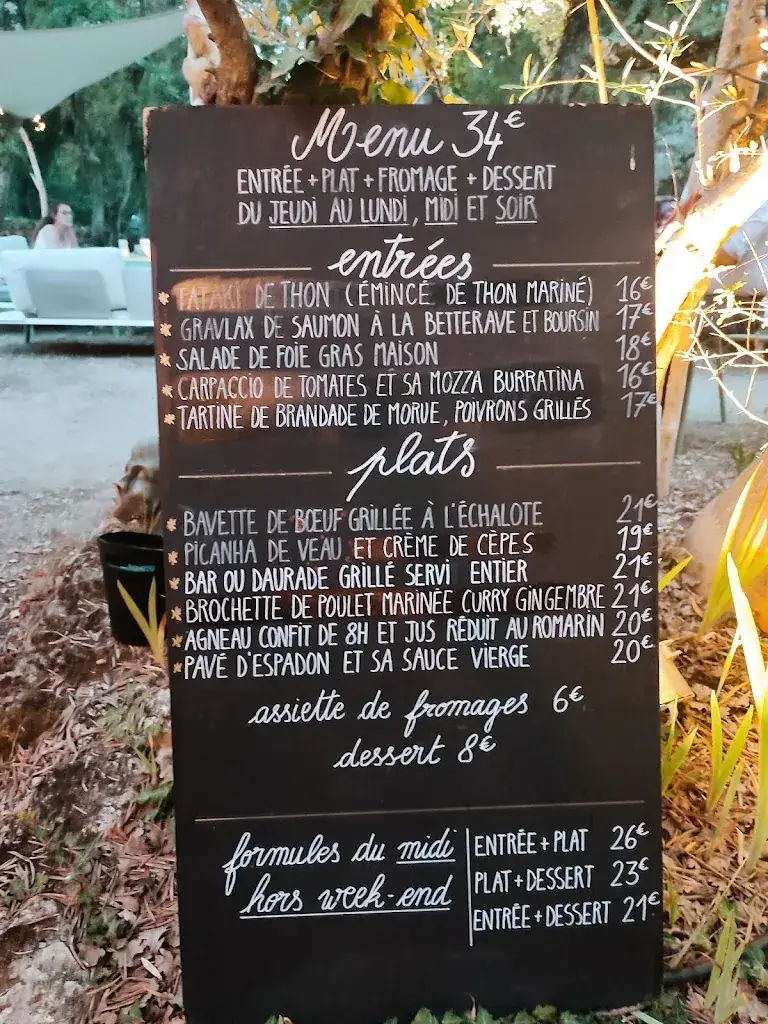 Menu 34€
ENTRÉE + PLAT + FROMAGE + DESSERT
DU JEUDI AU LUNDI, MIDI ET SOIR
entrées
TATAKI DE THON (ÉMINCÉ DE THON MARINÉ) 16€
GRAVLAX DE SAUMON À LA BETTERAVE ET BOURSIN 17€
SALADE DE FOIE GRAS MAISON 18€
CARPACCIO DE TOMATES ET SA MOZZA BURRATINA 16€
TARTINE DE BRANDADE DE MORUE, POIVRONS GRILLÉS 17€
plats
BAVETTE DE BŒUF GRILLÉE À L'ÉCHALOTE 21€
PICANHA DE VEAU ET CRÈME DE CÈPES 19€
BAR OU DAURADE GRILLÉ SERVI ENTIER 21€
BROCHETTE DE POULET MARINÉE CURRY GINGEMBRE 21€
AGNEAU CONFIT DE 8H ET JUS RÉDUIT AU ROMARIN 20€
PAVÉ D'ESPADON ET SA SAUCE VIERGE 20€
assiette de fromages 6€
dessert 8€
formules du midi
hors week-end
ENTRÉE + PLAT 26€
PLAT + DESSERT 23€
ENTRÉE + DESSERT 21€